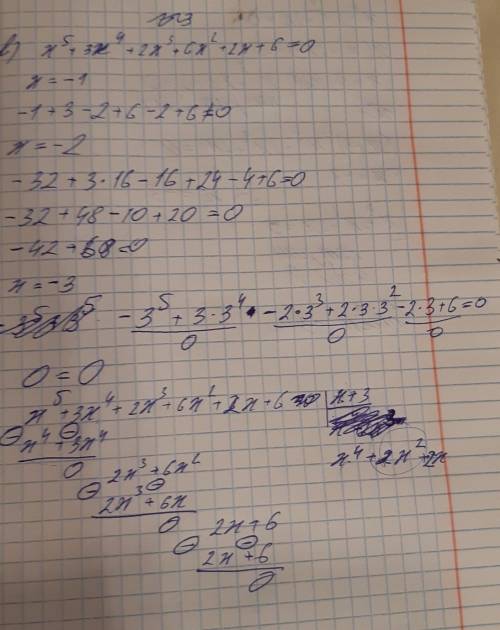 №3
в) x⁵+3x⁴+2x³+6x²+2x+6=0
x=-1
-1+3-2+6-2+6≠0
x=-2
-32+3·16-16+24-4+6=0
-32+48-10+20=0
-42+68=0
x=-3
-3⁵+3·3⁴-2·3³+2·3·3²-2·3+6=0
0 0 0
0=0
x⁵+3x⁴+2x³+6x²+2x+6 x+3
x⁴+3x⁴ x⁴+2x²+2x
0 2x³+6x²
2x³+6x
0 2x+6
2x+6
0